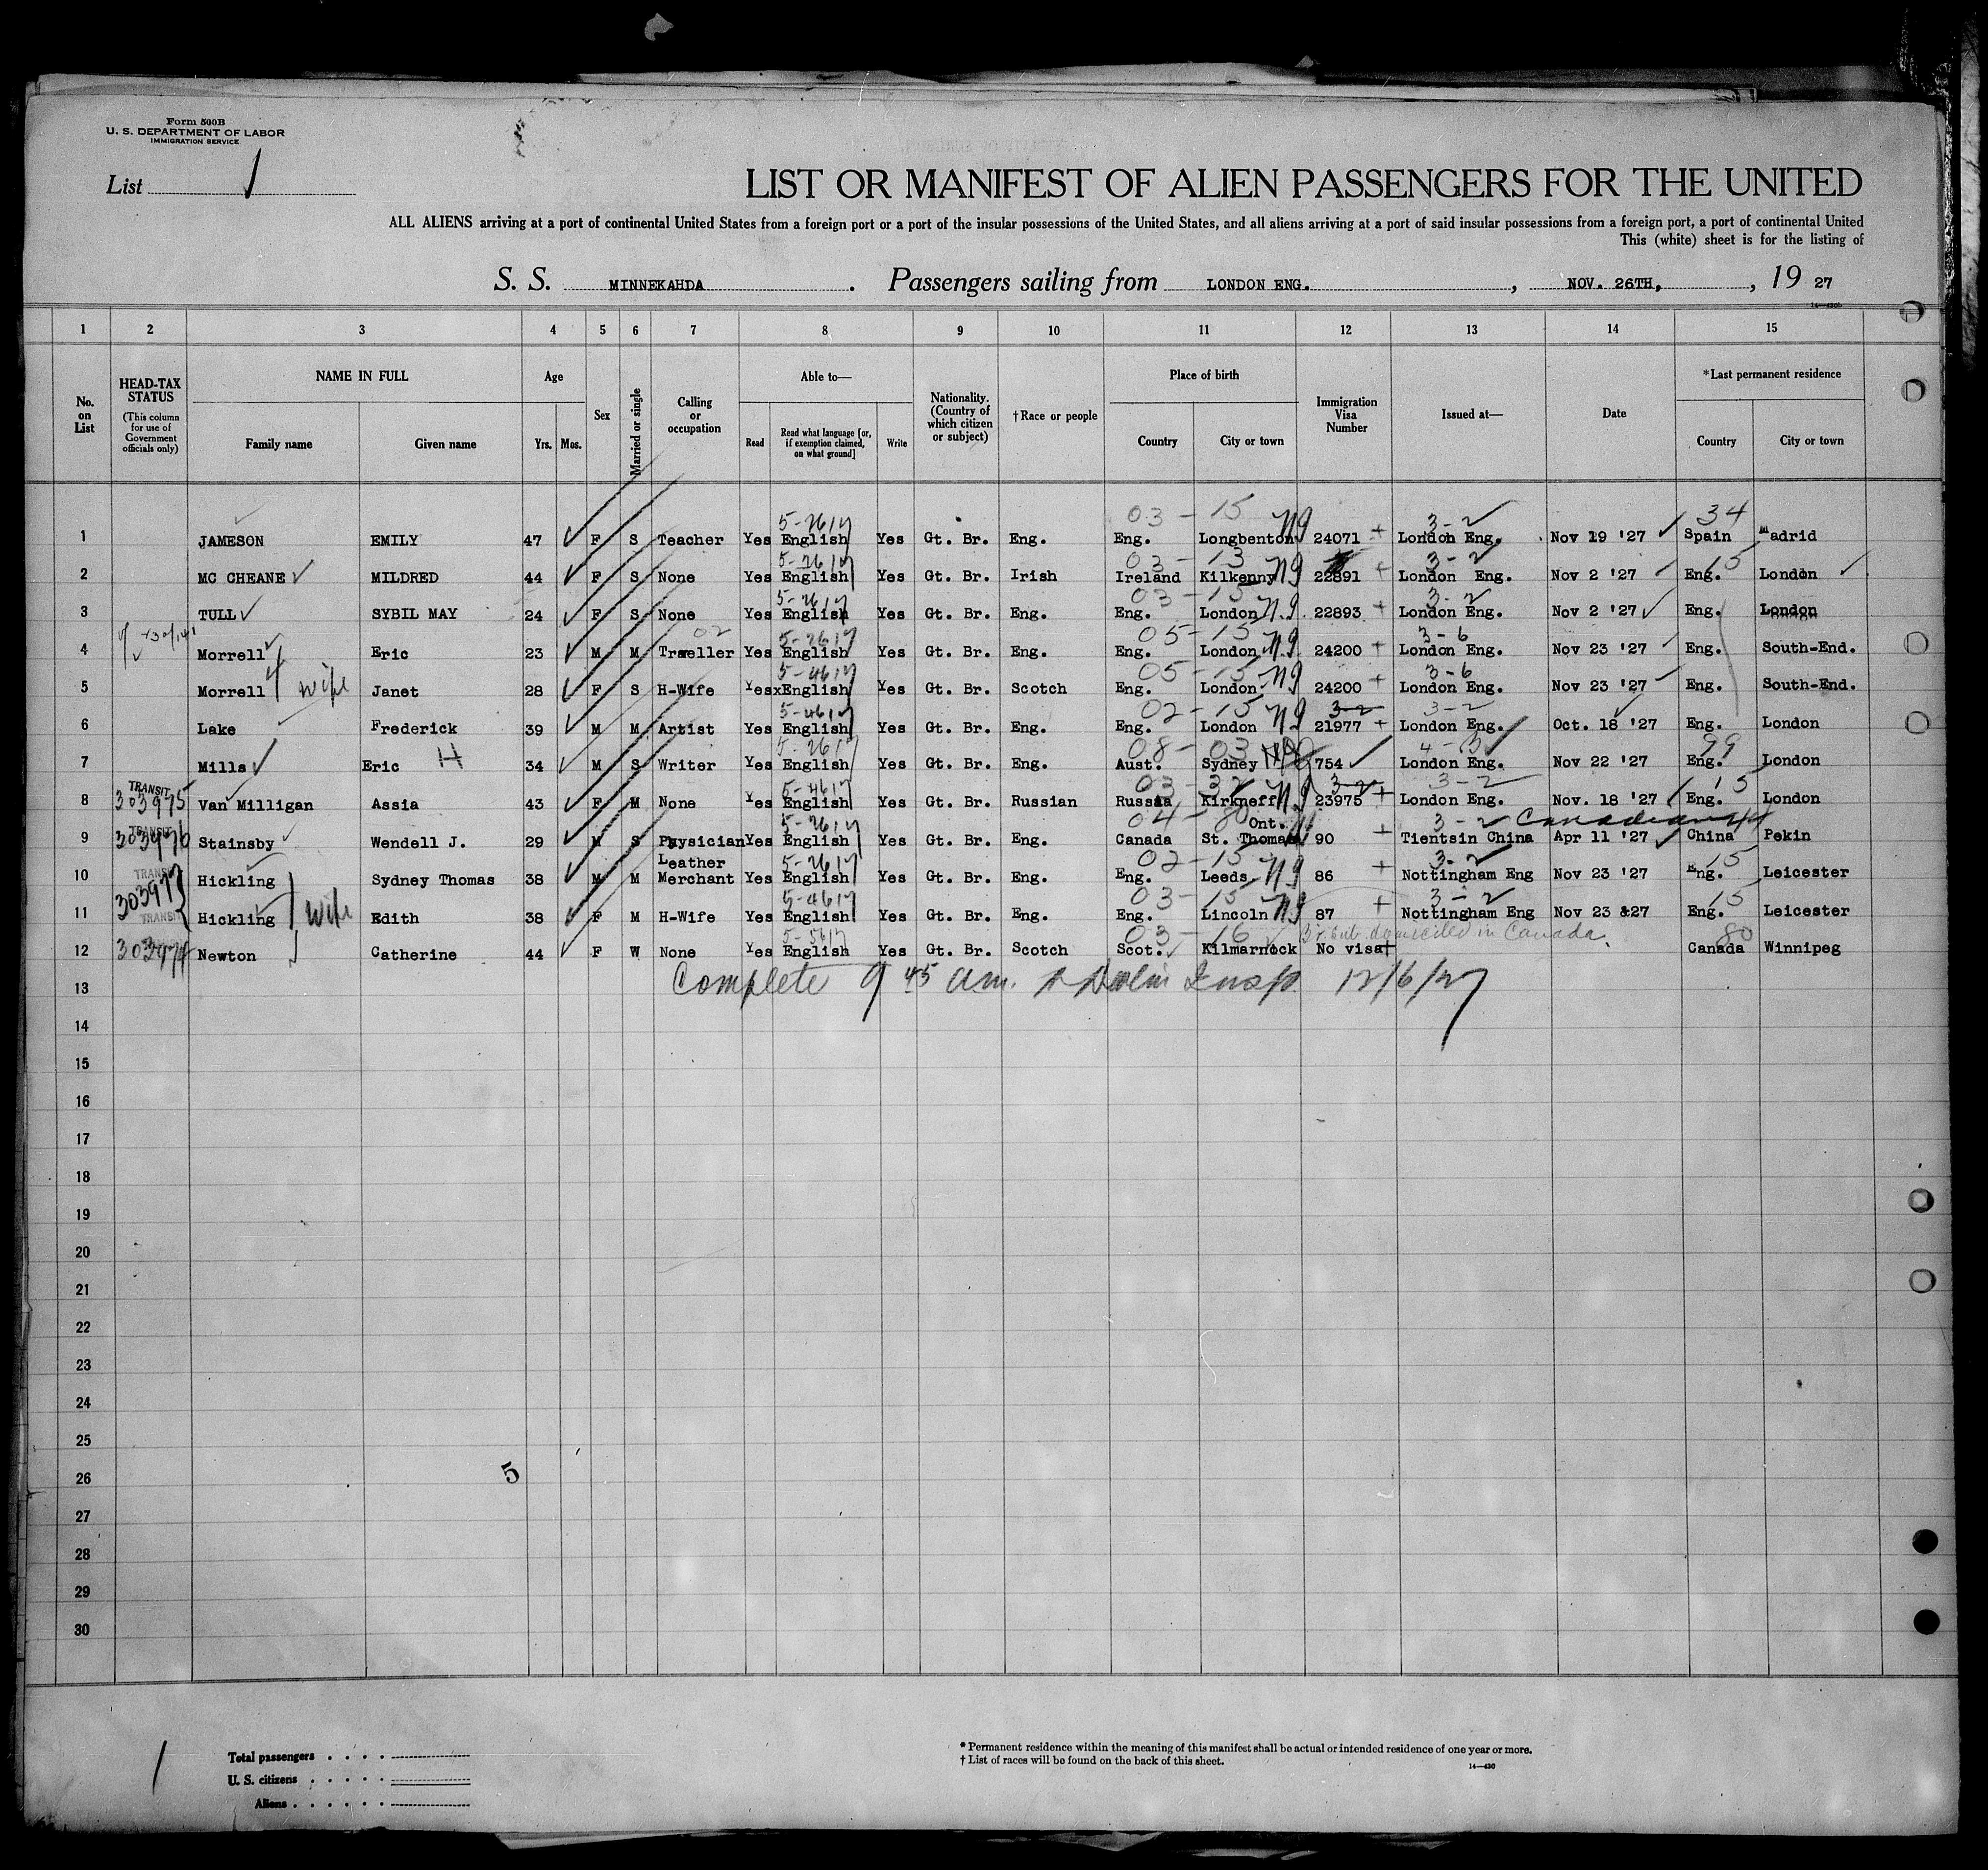 Form 500B
U. S. DEPARTMENT OF LABOR
IMMIGRATION SERVICE
List 1
LIST OR MANIFEST OF ALIEN PASSENGERS FOR THE UNITED
ALL ALIENS arriving at a port of continental United States from a foreign port or a port of the insular possessions of the United States, and all aliens arriving at a port of said insular possessions from a foreign port, a port of continental United
This (white) sheet is for the listing of
S. S. MINNEKAHDA . Passengers sailing from LONDON ENG. , NOV. 26TH, , 19 27
1 2 3 4 5 6 7 8 9 10 11 12 13 14 15
No. on List
HEAD-TAX STATUS (This column for use of Government officials only)
NAME IN FULL Family name Given name
Age Yrs. Mos.
Sex
Married or single
Calling or occupation
Able to— Read Read what language [or, if exemption claimed, on what ground] Write
Nationality. (Country of which citizen or subject)
†Race or people
Place of birth Country City or town
Immigration Visa Number
Issued at—
Date
*Last permanent residence Country City or town
03 - 15 5-2617 3-2 34
1 JAMESON EMILY 47 F S Teacher Yes English Yes Gt. Br. Eng. Eng. Longbenton 24071 London Eng. Nov 19 '27 Spain Madrid
03 - 13 5-2617 3-2 15
2 MC CHEANE MILDRED 44 F S None Yes English Yes Gt. Br. Irish Ireland Kilkenny 22891 London Eng. Nov 2 '27 Eng. London
03 - 15 5-2617 3-2
3 TULL SYBIL MAY 24 F S None Yes English Yes Gt. Br. Eng. Eng. London 22893 London Eng. Nov 2 '27 Eng. London
02 5-2617 05 - 15 3-6
4 Morrell Eric 23 M M Traeller Yes English Yes Gt. Br. Eng. Eng. London 24200 London Eng. Nov 23 '27 Eng. South-End.
5-4617 05 - 15 3-6
5 Morrell wife Janet 28 F S H-Wife YesxEnglish Yes Gt. Br. Scotch Eng. London 24200 London Eng. Nov 23 '27 Eng. South-End.
5-4617 02 - 15 3-2 3-2
6 Lake Frederick 39 M M Artist Yes English Yes Gt. Br. Eng. Eng. London 21977 London Eng. Oct. 18 '27 Eng. London
5-2617 08 - 03 4-3 99
7 Mills Eric H 34 M S Writer Yes English Yes Gt. Br. Eng. Aust. Sydney 754 London Eng. Nov 22 '27 Eng. London
TRANSIT 303975 5-4617 03 - 32 3-2 3-2 15
8 Van Milligan Assia 43 F M None Yes English Yes Gt. Br. Russian Russia Kirkneff 23975 London Eng. Nov. 18 '27 Eng. London
TRANSIT 303976 5-2617 04 - 80 Ont. 3-2 Canadian
9 Stainsby Wendell J. 29 M S Pysician Yes English Yes Gt. Br. Eng. Canada St. Thomas 90 Tientsin China Apr 11 '27 China Pekin
TRANSIT 303973 Leather 5-2617 02 - 15 3-2 15
10 Hickling Sydney Thomas 38 M M Merchant Yes English Yes Gt. Br. Eng. Eng. Leeds 86 Nottingham Eng Nov 23 '27 Eng. Leicester
TRANSIT 5-4617 03 - 15 3-2 15
11 Hickling wife Edith 38 F M H-Wife Yes English Yes Gt. Br. Eng. Eng. Lincoln 87 Nottingham Eng Nov 23 &27 Eng. Leicester
5-5617 03 - 16 domiciled in Canada. 80
12 Newton Catherine 44 F W None Yes English Yes Gt. Br. Scotch Scot. Kilmarnock No visa Canada Winnipeg
13 Complete 9 45 am. Insp. 12/6/27
14
15
16
17
18
19
20
21
22
23
24
25
26
5
27
28
29
30
1
Total passengers
U. S. citizens
Aliens
* Permanent residence within the meaning of this manifest shall be actual or intended residence of one year or more.
† List of races will be found on the back of this sheet.
14—430